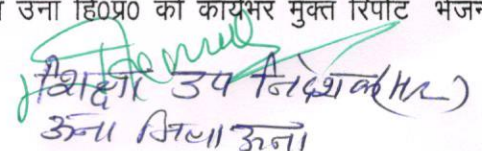 उना हि0प्र0 को कार्यभर मुक्त रिपोट भेजन
शिक्षा उप निदेशक
ऊना जिला ऊना